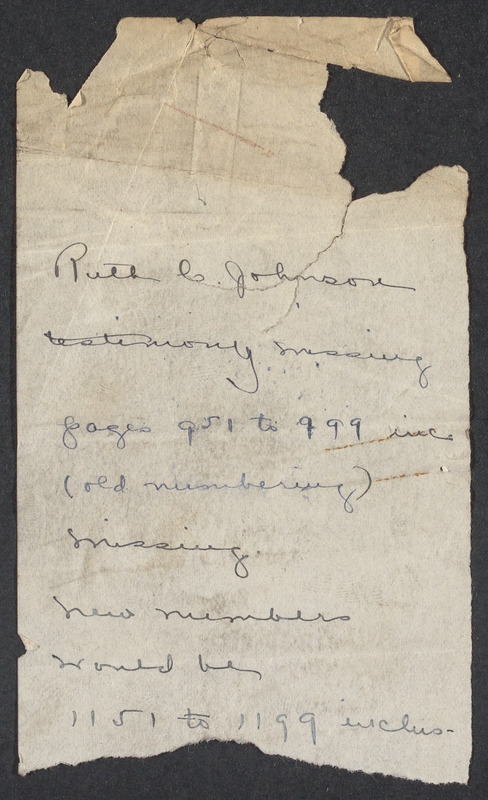 Ruth C. Johnson
testimony missing
pages 951 to 999 inc.
(old numbering)
missing.
New numbers
would be
1151 to 1199 inclus-